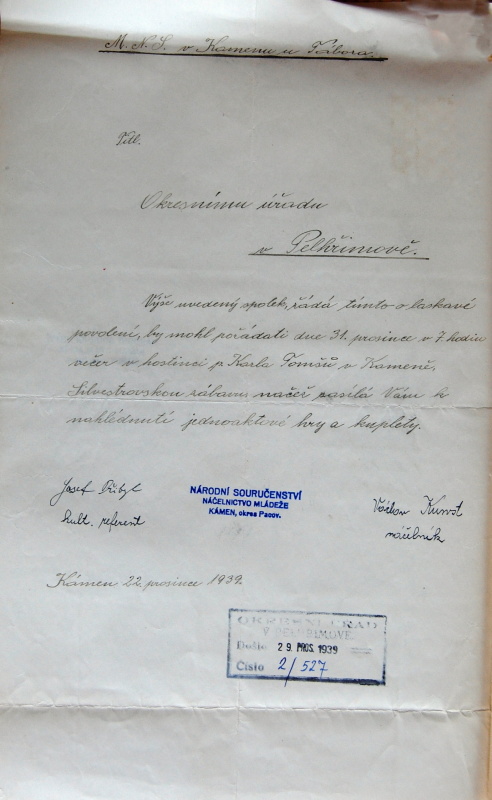 M.N.S. v Kamenu u Tábora.
Titl.
Okresnímu úřadu
v Pelhřimově.
Výše uvedený spolek, žádá tímto o laskavé
povolení, by mohl pořádati dne 31. prosince v 7 hodin
večer v hostinci p. Karla Tomšů v Kameně,
Silvestrovskou zábavu, načež zasílá Vám k
nahlédnutí jednoaktové hry a kuplety.
Josef Přibyl
kult. referent
NÁRODNÍ SOURUČENSTVÍ
NÁČELNICTVO MLÁDEŽE
KÁMEN, okres Pacov.
Václav
náčelník
Kámen 22. prosince 1939.
OKRESNÍ ÚŘAD
V PELHŘIMOVĚ
Došlo 29. PROS. 1939
Číslo 2/527